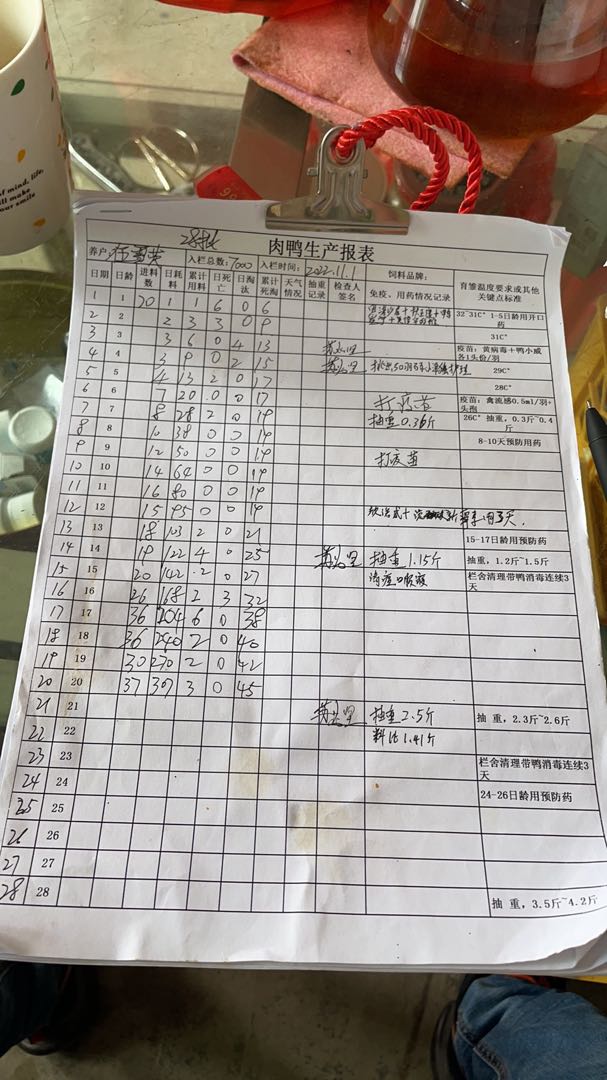 of mind, life,
ill make
our smile
28批
肉鸭生产报表
养户: 入栏总数: 7000 入栏时间: 2022.11.1 饲料品牌:
日期 日龄 进料数 日耗料 累计用料 日死亡 日淘汰 累计死淘 天气情况 抽重记录 检查人签名 免疫、用药情况记录 育雏温度要求或其他关键点标准
1 1 70 1 1 6 0 6 32~31C° 1-5日龄用开口药
2 2 2 3 3 0 9
3 3 3 6 0 4 13 31C°
4 4 3 9 0 2 15 疫苗: 黄病毒+鸭小威各1头份/羽
5 5 4 13 2 0 17 29C°
6 6 7 20 0 0 17 28C°
7 7 8 28 2 0 19 打疫苗 疫苗: 禽流感0.5ml/羽+头孢
8 8 10 38 0 0 19 抽重0.36斤 26C° 抽重, 0.3斤~0.4斤
9 9 12 50 0 0 19 8-10天预防用药
10 10 14 64 0 0 19 打疫苗
11 11 16 80 0 0 19
12 12 15 95 0 0 19
13 13 18 103 2 0 21
14 14 19 122 4 0 25 15-17日龄用预防药
15 15 20 142 2 0 27 抽重1.15斤 抽重, 1.2斤~1.5斤
16 16 26 168 2 3 32 栏舍清理带鸭消毒连续3天
17 17 36 204 6 0 38
18 18 36 240 2 0 40
19 19 30 270 2 0 42
20 20 37 307 3 0 45
21 21
22 22 抽重2.5斤 抽 重, 2.3斤~2.6斤
料比1.41斤
23 23
24 24 栏舍清理带鸭消毒连续3天
25 25 24-26日龄用预防药
26 26
27 27
28 28 抽 重, 3.5斤~4.2斤